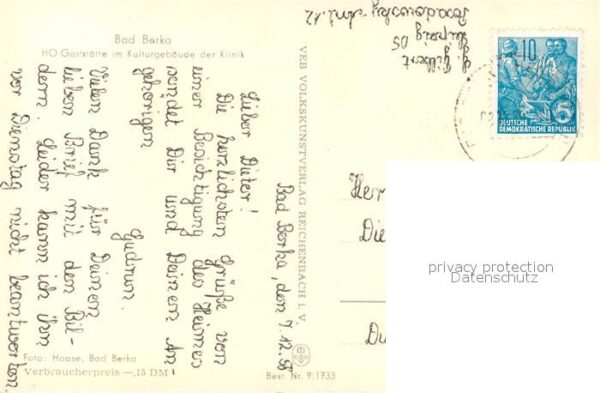 Bad Berka
HO-Gaststätte im Kulturgebäude der Klinik
Bad Berka, den 7.12.58
Lieber Dieter!
Die herzlichsten Grüße von
einer Besichtigung des Heimes
sendet Dir und Deinen An-
gehörigen
Gudrun.
Vielen Dank für Deinen
lieben Brief mit den Bil-
dern. Leider kann ich ihn
vor Dienstag nicht beantworten.
Foto: Haase, Bad Berka
Verbraucherpreis -,15 DM
VEB VOLKSKUNSTVERLAG REICHENBACH i. V.
Best. Nr. 9/1733
G. Gilbert
Leipzig O5
10
5
DEUTSCHE
DEMOKRATISCHE REPUBLIK
Her
Die
Du
privacy protection
Datenschutz